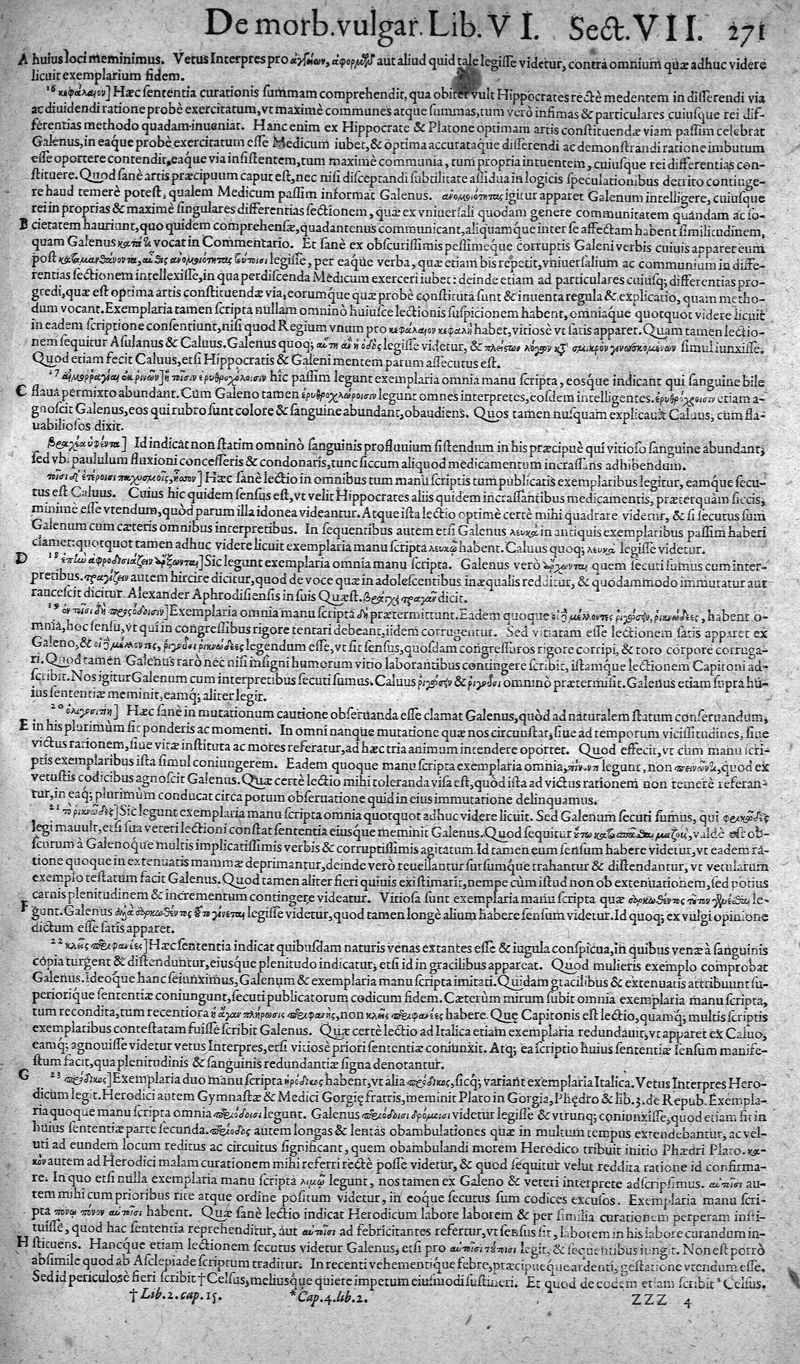 De morb. vulgar. Lib. VI. Sect. VII. 271
A huius loci meminimus. Vetus Interpres pro aut aliud quid tale legisse videtur, contra omnium quæ adhuc videre
licuit exemplarium fidem.
16 κεφάλαιον] Hæc sententia curationis summam comprehendit, qua obiter vult Hippocrates rectè medentem in differendi via
ac diuidendi ratione probè exercitatum, vt maximè communes atque summas, tum verò infimas & particulares cuiusque rei dif-
ferentias methodo quadam inueniat. Hanc enim ex Hippocrate & Platone optimam artis constituendæ viam passim celebrat
Galenus, in eaque probè exercitatum esse Medicum iubet, & optima accurataque differendi ac demonstrandi ratione imbutum
esse oportere contendit, eaque via insistentem, tum maximè communia, tum propria intuentem, cuiusque rei differentias con-
stituere. Quod sanè artis præcipuum caput est, nec nisi disceptandi subtilitate assidua in logicis speculationibus detrito continge-
re haud temerè potest, qualem Medicum passim informat Galenus. ἀνομοιότητας igitur apparet Galenum intelligere, cuiusque
rei in proprias & maximè singulares differentias sectionem, quæ ex vniuersali quodam genere communitatem quandam ac so-
B cietatem hauriunt, quo quidem comprehensæ, quadantenus communicant, aliquamque inter se affectam habent similitudinem,
quam Galenus vocat in Commentario. Et sanè ex obscurissimis pessimeque corruptis Galeni verbis cuiuis apparet eum
post legisse, per eaque verba, quæ etiam bis repetit, vniuersalium ac communium in diffe-
rentias sectionem intellexisse, in qua perdiscenda Medicum exerceri iubet: deinde etiam ad particulares cuiusq; differentias pro-
gredi, quæ est optima artis constituendæ via, eorumque quæ probè constituta sunt & inuenta regula & explicatio, quam metho-
dum vocant. Exemplaria tamen scripta nullam omninò huiusce lectionis suspicionem habent, omniaque quotquot videre licuit
in eadem scriptione consentiunt, nisi quod Regium vnum pro κεφάλαιον κεφαλὴ habet, vitiosè vt satis apparet. Quam tamen lectio-
nem sequitur Asulanus & Caluus. Galenus quoq; αὕτη ἡ ὁδὸς legisse videtur, & simul iunxisse.
Quod etiam fecit Caluus, etsi Hippocratis & Galeni mentem parum assecutus est.
17 hic passim legunt exemplaria omnia manu scripta, eosque indicant qui sanguine bile
C flaua permixto abundant. Cùm Galeno tamen ἐρυθροχλώροισιν legunt omnes interpretes, eosdem intelligentes. etiam a-
gnoscit Galenus, eos qui rubro sunt colore & sanguine abundant, obaudiens. Quos tamen nusquam explicauit Caluus, cum fla-
uabiliosos dixit.
Id indicat non statim omninò sanguinis profluuium sistendum in his præcipuè qui vitioso sanguine abundant;
sed vbi paululum fluxioni concesseris & condonaris, tunc siccum aliquod medicamentum incrassans adhibendum.
Hæc sanè lectio in omnibus tum manu scriptis tum publicatis exemplaribus legitur, eamque secu-
tus est Caluus. Cuius hic quidem sensus est, vt velit Hippocrates aliis quidem incrassantibus medicamentis, præterquam siccis,
minimè esse vtendum, quòd parum illa idonea videantur. Atque ista lectio optimè certè mihi quadrare videtur, & si secutus sum
Galenum cum cæteris omnibus interpretibus. In sequentibus autem etsi Galenus λευκὰ in antiquis exemplaribus passim haberi
clamet: quotquot tamen adhuc videre licuit exemplaria manu scripta habent. Caluus quoq; λευκὰ legisse videtur.
D 18 Sic legunt exemplaria omnia manu scripta. Galenus verò quem secuti sumus cum inter-
pretibus. τραγίζειν autem hircire dicitur, quod de voce quæ in adolescentibus inæqualis redditur, & quodammodo immutatur aut
raucescit dicitur. Alexander Aphrodisiensis in suis Quæst. dicit.
19 Exemplaria omnia manu scripta δὴ prætermittunt. Eadem quoque habent o-
mnia, hoc sensu, vt qui in congressibus rigore tentari debeant, iidem corrugentur. Sed vitiatam esse lectionem satis apparet ex
Galeno, & legendum esse, vt sit sensus, quosdam congressuros rigore corripi, & toto corpore corruga-
ri. Quod tamen Galenus rarò nec nisi insigni humorum vitio laborantibus contingere scribit, istamque lectionem Capitoni ad-
scribit. Nos igitur Galenum cum interpretibus secuti sumus. Caluus omninò prætermisit. Galenus etiam supra hu-
ius sententiæ meminit, eamq; aliter legit.
20 Hæc sanè in mutationum cautione obseruanda esse clamat Galenus, quòd ad naturalem statum conseruandum,
E in his plurimum sit ponderis ac momenti. In omni nanque mutatione quæ nos circunstat, siue ad temporum vicissitudines, siue
victus rationem, siue vitæ instituta ac mores referatur, ad hæc tria animum intendere oportet. Quod effecit, vt cùm manu scri-
ptis exemplaribus ista simul coniungerem. Eadem quoque manu scripta exemplaria omnia, legunt, non quod ex
vetustis codicibus agnoscit Galenus. Quæ certè lectio mihi toleranda visa est, quòd ista ad victus rationem non temerè referan-
tur, in eaq; plurimum conducat circa potum obseruatione quid in eius immutatione delinquamus.
21 Sic legunt exemplaria manu scripta omnia quotquot adhuc videre licuit. Sed Galenum secuti sumus, qui
legi mauult, etsi sua veteri lectioni constat sententia eiusque meminit Galenus. Quod sequitur valdè est ob-
scurum à Galenoque multis implicatissimis verbis & corruptissimis agitatum. Id tamen eum sensum habere videtur, vt eadem ra-
tione quoque in extenuatis mammæ deprimantur, deinde verò reuellantur sursumque trahantur & distendantur, vt vetularum
exemplo testatum facit Galenus. Quod tamen aliter fieri quiuis existimarit, nempe cùm istud non ob extenuationem, sed potius
carnis plenitudinem & incrementum contingere videatur. Vitiosa sunt exemplaria manu scripta quæ le-
F gunt. Galenus legisse videtur, quod tamen longè alium habere sensum videtur. Id quoq; ex vulgi opinione
dictum esse satis apparet.
22 Hæc sententia indicat quibusdam naturis venas extantes esse & iugula conspicua, in quibus venæ à sanguinis
copia turgent & distenduntur, eiusque plenitudo indicatur, etsi id in gracilibus appareat. Quod mulieris exemplo comprobat
Galenus. Ideoque hanc seiunximus, Galenum & exemplaria manu scripta imitati. Quidam gracilibus & extenuatis attribuunt su-
periorique sententiæ coniungunt, secuti publicatorum codicum fidem. Cæterùm mirum subit omnia exemplaria manu scripta,
tum recondita, tum recentiora habere. Que Capitonis est lectio, quamq; multis scriptis
exemplaribus contestatam fuisse scribit Galenus. Quæ certè lectio ad Italica etiam exemplaria redundauit, vt apparet ex Caluo,
eamq; agnouisse videtur vetus Interpres, etsi vitiosè priori sententiæ coniunxit. Atq; ea scriptio huius sententiæ sensum manife-
stum facit, qua plenitudinis & sanguinis redundantiæ signa denotantur.
G 23 Exemplaria duo manu scripta ἡρόδικος habent, vt alia sicq; variant exemplaria Italica. Vetus Interpres Hero-
dicum legit. Herodici autem Gymnastæ & Medici Gorgiæ fratris, meminit Plato in Gorgia, Phędro & lib. 3. de Repub. Exempla-
ria quoque manu scripta omnia legunt. Galenus videtur legisse & vtrunq; coniunxisse, quod etiam fit in
huius sententiæ parte secunda. autem longas & lentas obambulationes quæ in multum tempus extendebantur, ac vel-
uti ad eundem locum reditus ac circuitus significant, quem obambulandi morem Herodico tribuit initio Phædri Plato. κα-
κὸν autem ad Herodici malam curationem mihi referri rectè posse videtur, & quod sequitur velut reddita ratione id confirma-
re. In quo etsi nulla exemplaria manu scripta legunt, nos tamen ex Galeno & veteri interprete adscripsimus. au-
tem mihi cum prioribus rite atque ordine positum videtur, in eoque secutus sum codices excusos. Exemplaria manu scri-
pta habent. Quæ sanè lectio indicat Herodicum labore laborem & per similia curationem perperam insti-
tuisse, quod hæc sententia reprehenditur, aut ad febricitantes refertur, vt sensus sit, laborem in his labore curandum in-
H stituens. Hancque etiam lectionem secutus videtur Galenus, etsi pro legit, & sequentibus iungit. Non est porrò
absimile quod ab Asclepiade scriptum traditur. In recenti vehementique febre, præcipuequeardenti, gestatione vtendum esse.
Sed id periculosè fieri scribit † Celsus, meliusque quiere impetum eiusmodi sustineri. Et quod de eodem etiam scribit * Celsus.
† Lib. 2. cap. 15. * Cap. 4. lib. 2. ZZZ 4